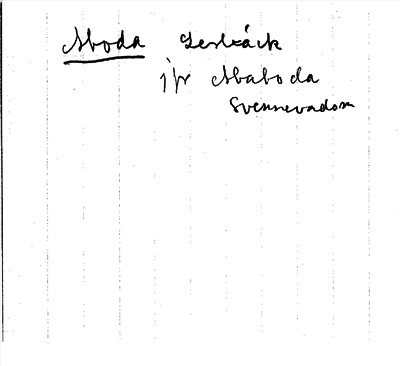 Aboda Lerbäck
jfr Ababoda
Svennevadsn